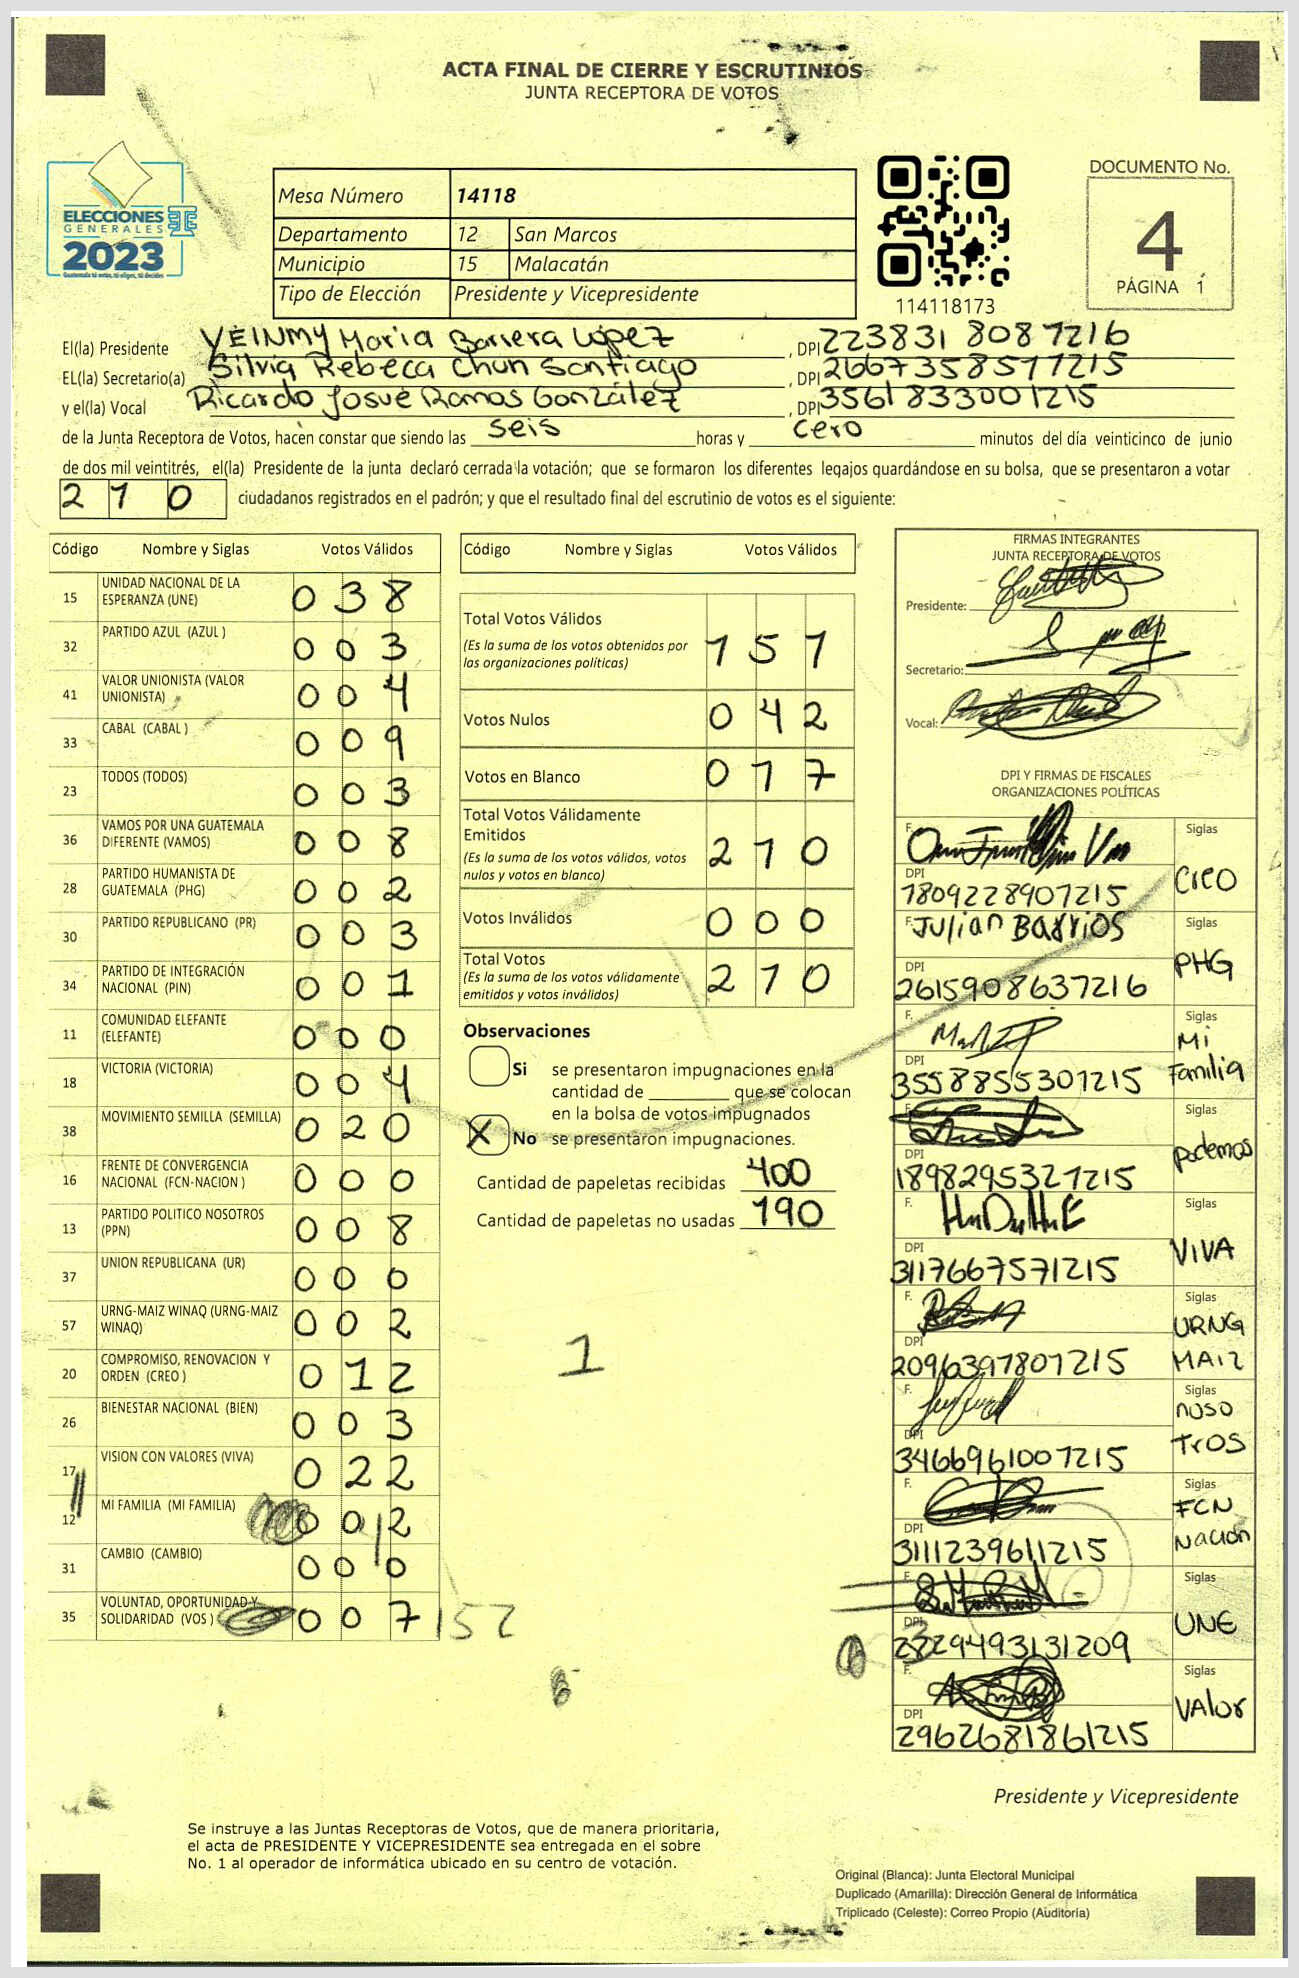 ACTA FINAL DE CIERRE Y ESCRUTINIOS
JUNTA RECEPTORA DE VOTOS
ELECCIONES
GENERALES
2023
Guatemala tú votas, tú eliges, tú decides
Mesa Número 14118
Departamento 12 San Marcos
Municipio 15 Malacatán
Tipo de Elección Presidente y Vicepresidente
114118173
DOCUMENTO No.
4
PÁGINA 1
El(la) Presidente YEINMY María Barrera López, DPI 223831 8087216
EL(la) Secretario(a) Silvia Rebeca Chun Santiago, DPI 2667358517215
y el(la) Vocal Ricardo Josue Ramos González, DPI 3561833001215
de la Junta Receptora de Votos, hacen constar que siendo las seis horas y cero minutos del día veinticinco de junio
de dos mil veintitrés, el(la) Presidente de la junta declaró cerrada la votación; que se formaron los diferentes legajos quardándose en su bolsa, que se presentaron a votar
210 ciudadanos registrados en el padrón; y que el resultado final del escrutinio de votos es el siguiente:
Código Nombre y Siglas Votos Válidos
15 UNIDAD NACIONAL DE LA ESPERANZA (UNE) 0 3 8
32 PARTIDO AZUL (AZUL ) 0 0 3
41 VALOR UNIONISTA (VALOR UNIONISTA) 0 0 4
33 CABAL (CABAL ) 0 0 9
23 TODOS (TODOS) 0 0 3
36 VAMOS POR UNA GUATEMALA DIFERENTE (VAMOS) 0 0 8
28 PARTIDO HUMANISTA DE GUATEMALA (PHG) 0 0 2
30 PARTIDO REPUBLICANO (PR) 0 0 3
34 PARTIDO DE INTEGRACIÓN NACIONAL (PIN) 0 0 1
11 COMUNIDAD ELEFANTE (ELEFANTE) 0 0 0
18 VICTORIA (VICTORIA) 0 0 4
38 MOVIMIENTO SEMILLA (SEMILLA) 0 2 0
16 FRENTE DE CONVERGENCIA NACIONAL (FCN-NACION ) 0 0 0
13 PARTIDO POLITICO NOSOTROS (PPN) 0 0 8
37 UNION REPUBLICANA (UR) 0 0 0
57 URNG-MAIZ WINAQ (URNG-MAIZ WINAQ) 0 0 2
20 COMPROMISO, RENOVACION Y ORDEN (CREO ) 0 1 2
26 BIENESTAR NACIONAL (BIEN) 0 0 3
17 VISION CON VALORES (VIVA) 0 2 2
12 MI FAMILIA (MI FAMILIA) 0 0 2
31 CAMBIO (CAMBIO) 0 0 0
35 VOLUNTAD, OPORTUNIDAD Y SOLIDARIDAD (VOS ) 0 0 7
152
Código Nombre y Siglas Votos Válidos
Total Votos Válidos
(Es la suma de los votos obtenidos por
las organizaciones políticas) 1 5 1
Votos Nulos 0 4 2
Votos en Blanco 0 1 7
Total Votos Válidamente
Emitidos
(Es la suma de los votos válidos, votos
nulos y votos en blanco) 2 1 0
Votos Inválidos 0 0 0
Total Votos
(Es la suma de los votos válidamente
emitidos y votos inválidos) 2 1 0
Observaciones
Si se presentaron impugnaciones en la
cantidad de ________ que se colocan
en la bolsa de votos impugnados
X No se presentaron impugnaciones.
Cantidad de papeletas recibidas 400
Cantidad de papeletas no usadas 190
1
FIRMAS INTEGRANTES
JUNTA RECEPTORA DE VOTOS
Presidente:
Secretario:
Vocal:
DPI Y FIRMAS DE FISCALES
ORGANIZACIONES POLÍTICAS
F. Siglas
DPI 1809228907215 Creo
F. Julian Barrios Siglas
DPI 2615908637216 PHG
F. Siglas
DPI 3558855301215 Mi Familia
F. Siglas
DPI 1898295321215 podemos
F. Siglas
DPI 3117667571215 VIVA
F. Siglas
DPI 2096397807215 URNG MAIZ
F. Siglas
DPI 3466961007215 nosoTros
F. Siglas
DPI 3111239611215 FCN Nación
F. Siglas
DPI 2829493131209 UNE
F. Siglas
DPI 2962681861215 Valor
Presidente y Vicepresidente
Se instruye a las Juntas Receptoras de Votos, que de manera prioritaria,
el acta de PRESIDENTE Y VICEPRESIDENTE sea entregada en el sobre
No. 1 al operador de informática ubicado en su centro de votación.
Original (Blanca): Junta Electoral Municipal
Duplicado (Amarilla): Dirección General de Informática
Triplicado (Celeste): Correo Propio (Auditoría)